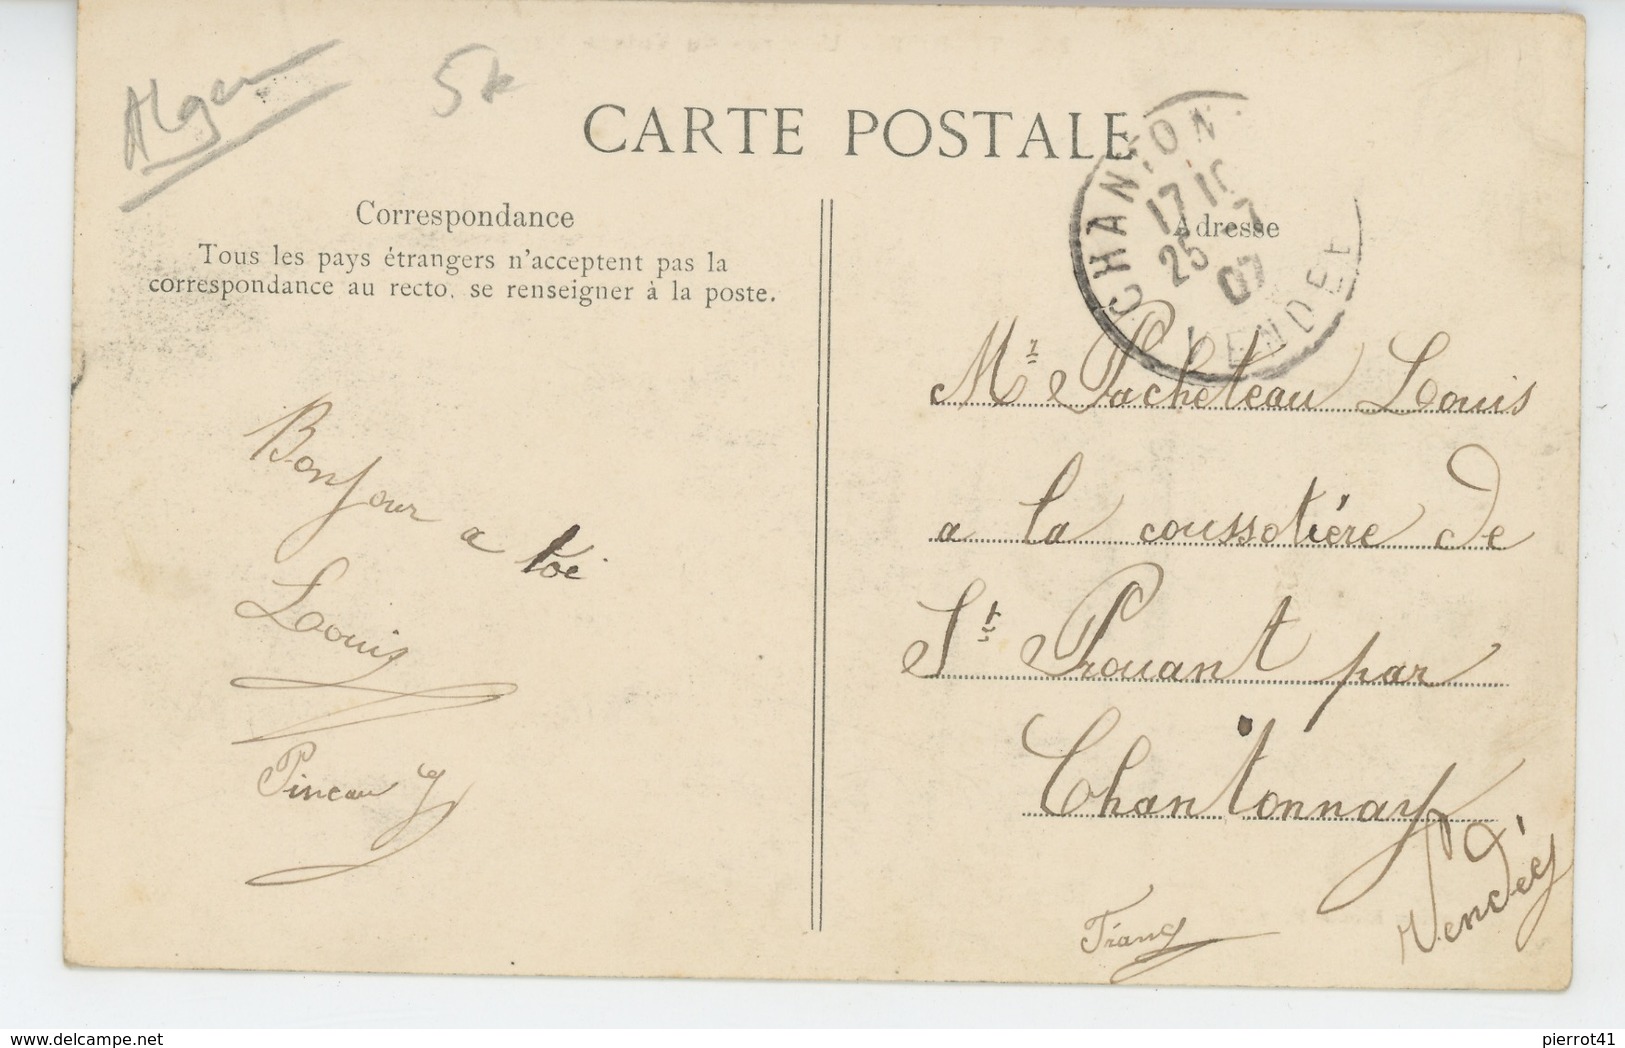 CARTE POSTALE
Correspondance
Tous les pays étrangers n'acceptent pas la
correspondance au recto, se renseigner à la poste.
Bonjour a toi
Louis
Pineau
Adresse
CHANTON
17 10
25 -7
07
VENDEE
Mr Pacheteau Louis
a la coussotiére de
St Prouant par
Chantonnay
Vendée
www.delcampe.net
pierrot41